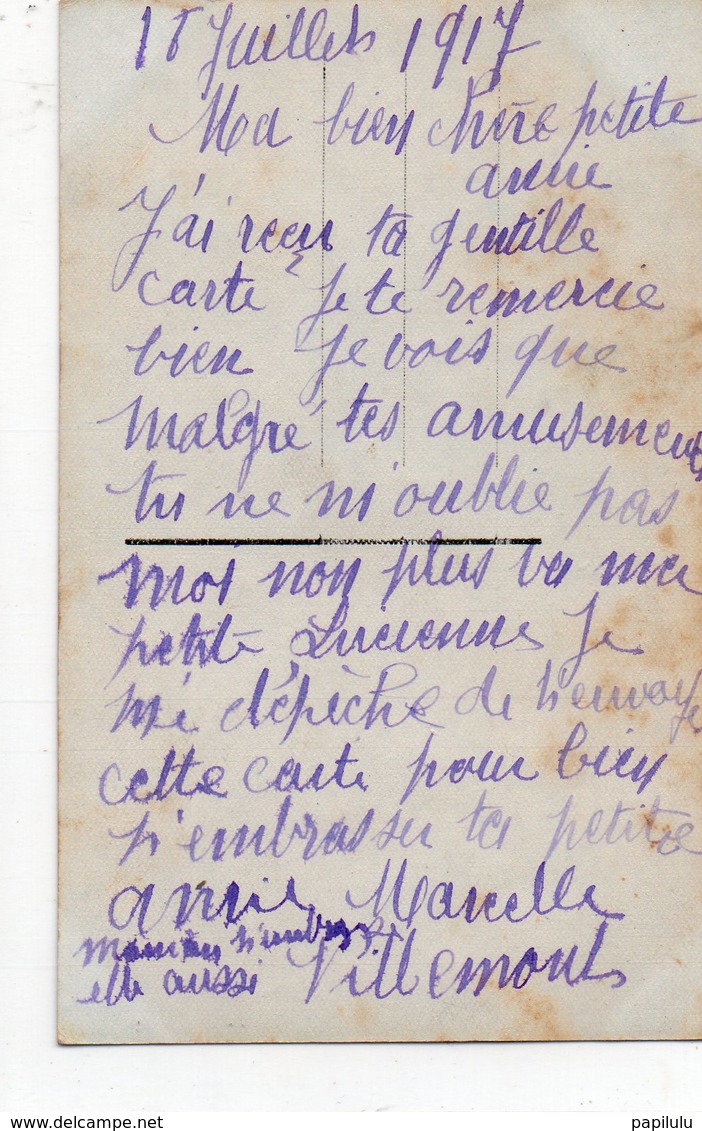 18 Juillets 1917
Ma bien chère petite
amie
J'ai reçu ta gentille
carte Je te remercie
bien Je vois que
malgré tes amusements
tu ne m'oublie pas
moi non plus va ma
petite Lucienne Je
me dépèche de t'envoyer
cette carte pour bien
t'embrasser ta petite
amie Marcelle
maman t'embrasse
elle aussi Villemonts
www.delcampe.net
papilulu